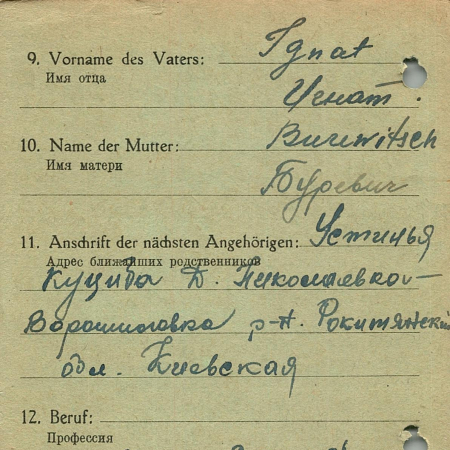 9. Vorname des Vaters: Ignat
Имя отца
Игнат.
10. Name der Mutter: Burewitsch
Имя матери
Буревич
11. Anschrift der nächsten Angehörigen: Устинья
Адрес ближайших родственников
Куциба Д. Николаевка-
Ворошиловка р-н. Рокитянский
обл. Киевская
12. Beruf:
Профессия